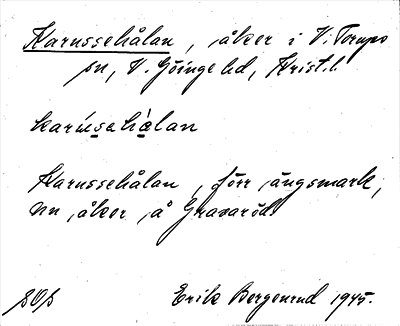 Karussehålan, åker i V. Torups
sn, V. Göinge hd, Krist. l.
Karussehålan, förr ängsmark,
nu åker å Gravaröd.
Erik Bergenrud 1945.